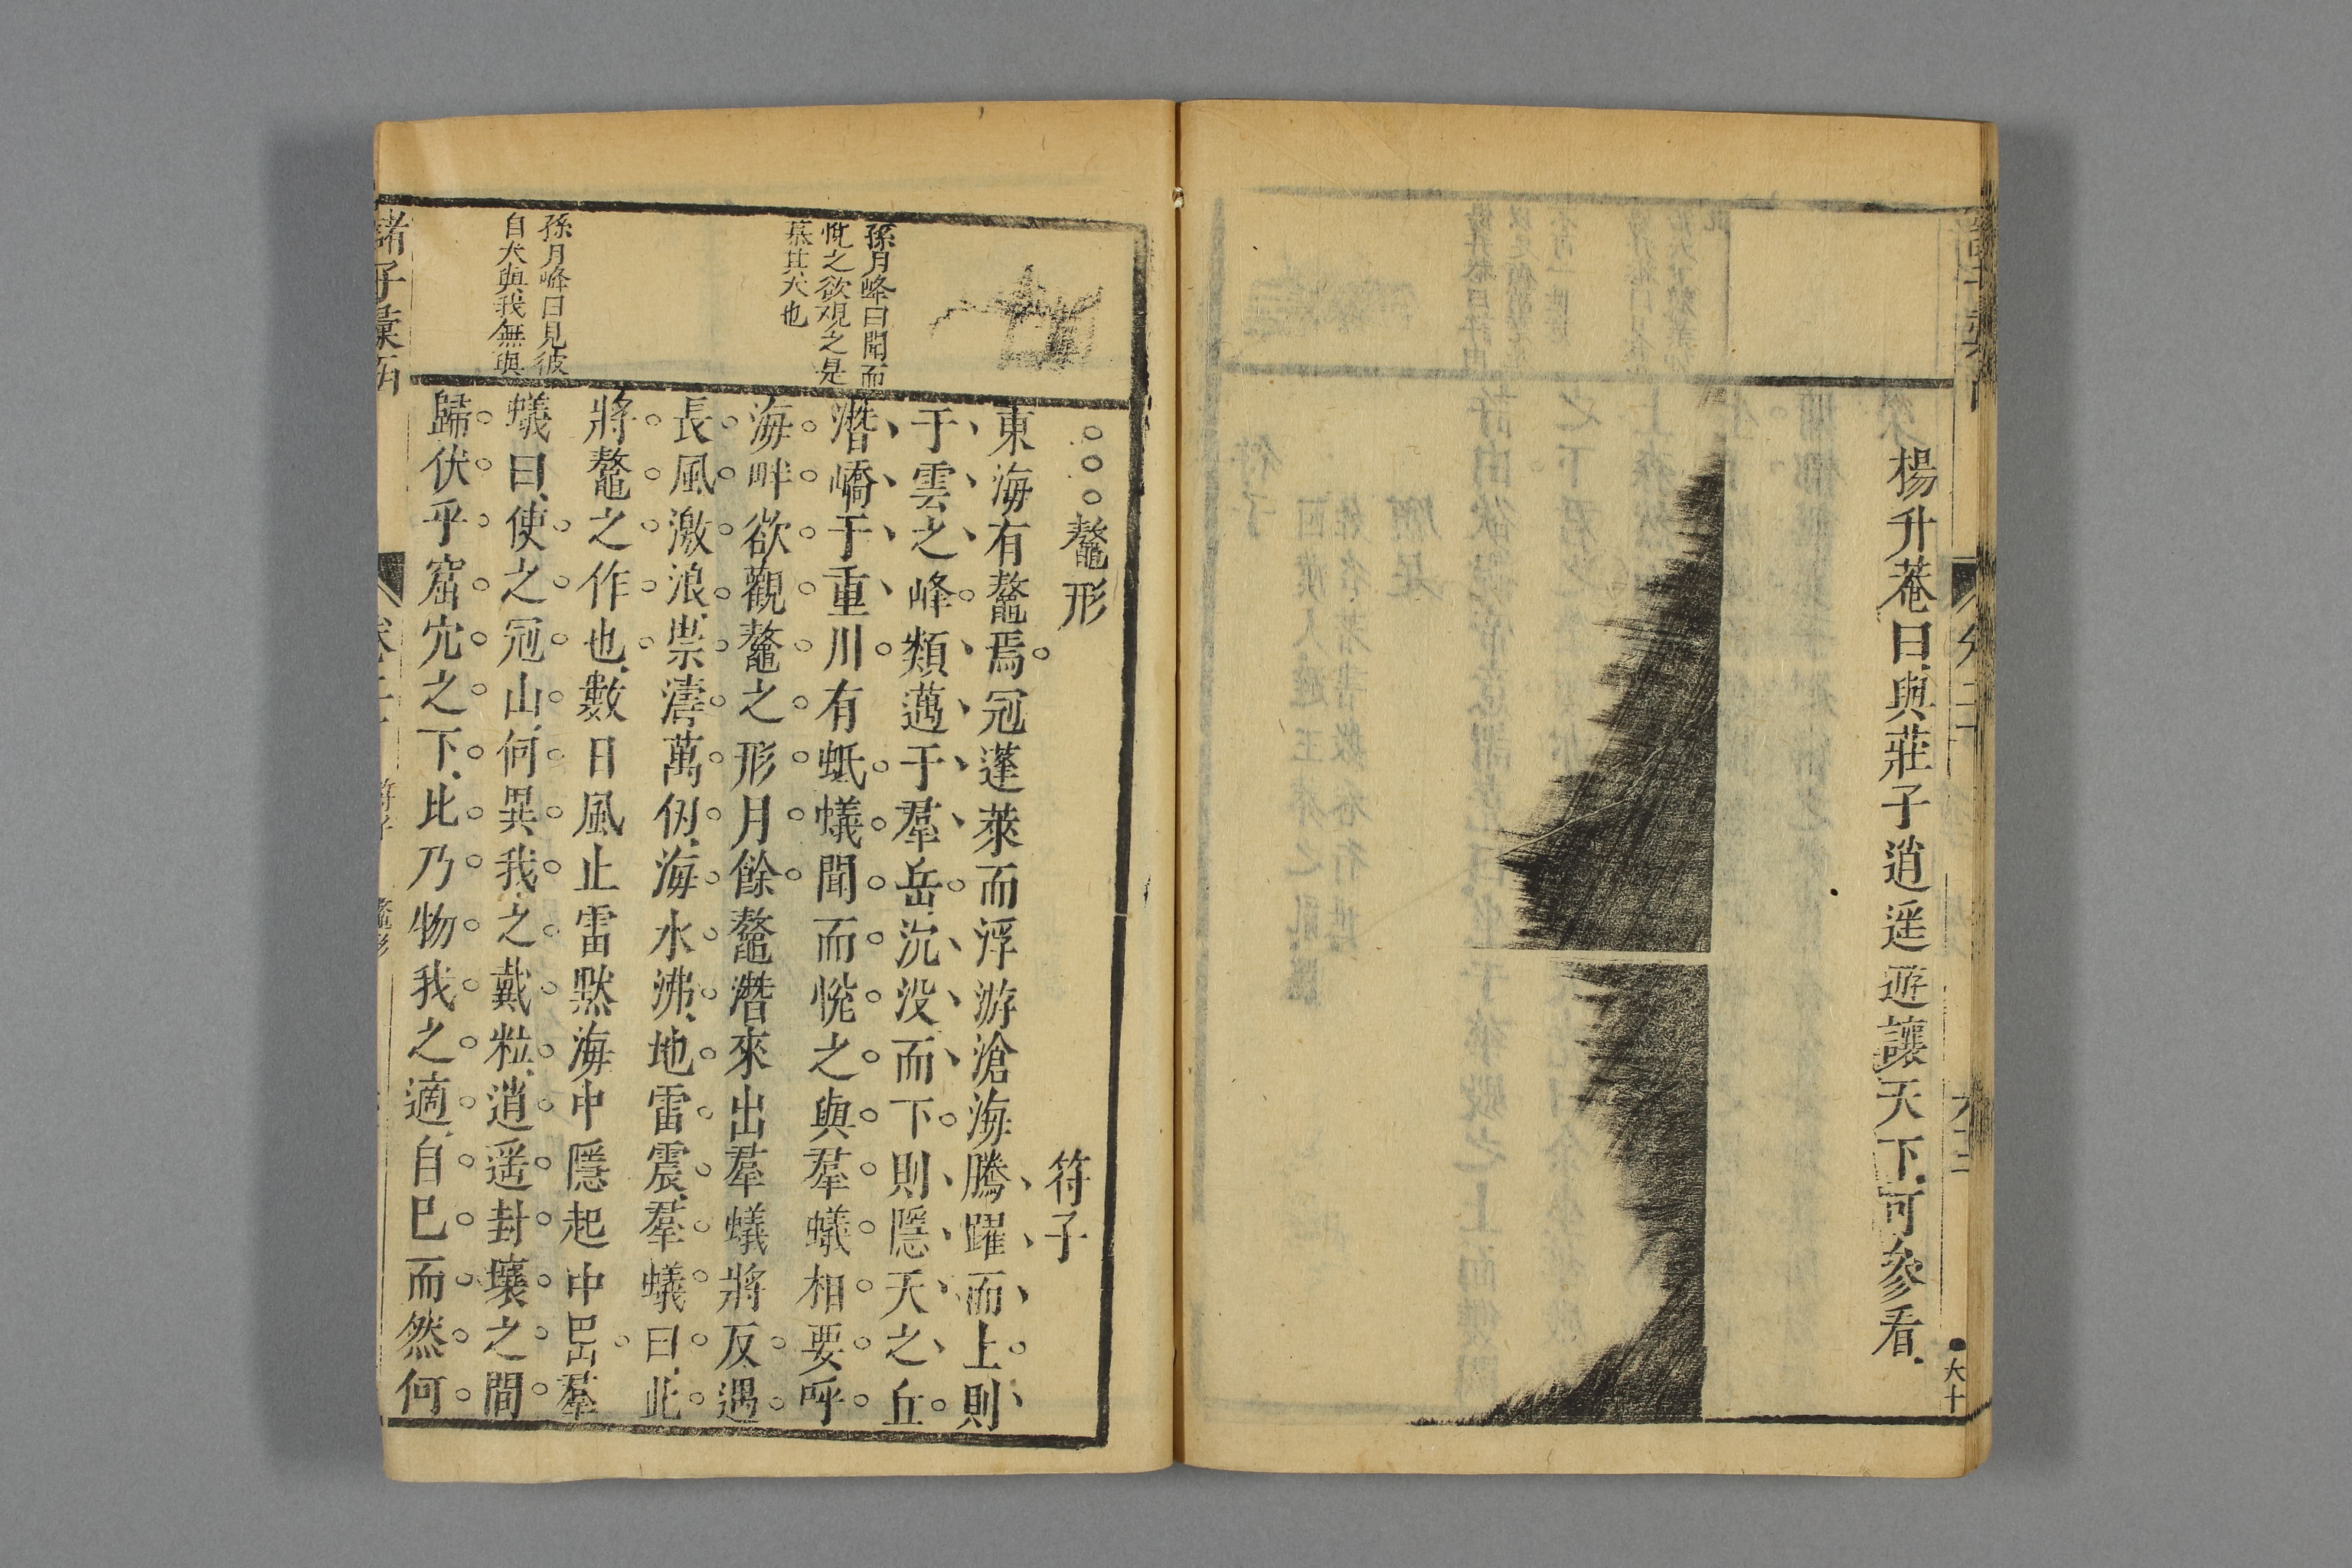 楊升菴曰與莊子逍遥遊讓天下可參看
大十
鼇形 符子
東海有鼇焉冠蓬萊而浮游滄海騰躍而上則
于雲之峰類邁于羣岳沉没而下則隱天之丘
潛嶠于重川有蚳蟻聞而恱之與羣蟻相要呼
海畔欲觀鼇之形月餘鼇潛來出羣蟻將反遇
長風激浪崇濤萬仞海水沸地雷震羣蟻曰此
將鼇之作也數日風止雷默海中隱起中岊羣
蟻曰使之冠山何異我之戴粒逍遥封壤之間
歸伏乎窟宂之下比乃物我之適自巳而然何
孫月峰曰聞而
恱之欲观之是
慕其大也
孫月峰曰見彼
自大與我無與
諸子彙函
符子 鼇形